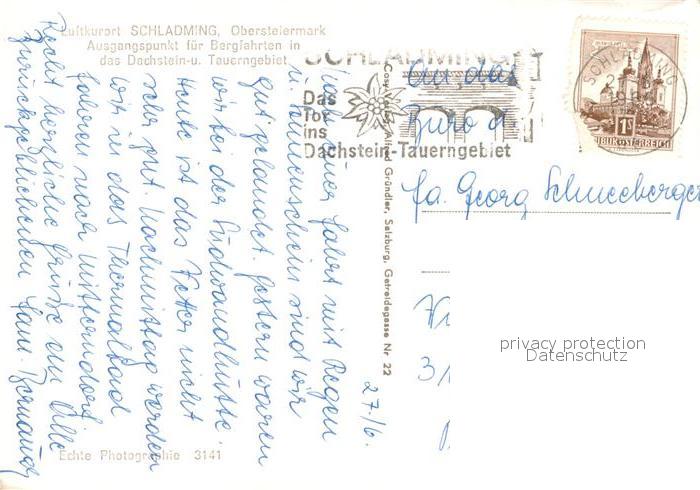 Luftkurort SCHLADMING, Obersteiermark
Ausgangspunkt für Bergfahrten in
das Dachstein-u. Tauerngebiet
SCHLADMING
Das
Tor
ins
Dachstein-Tauerngebiet
SCHLADMING
1S
REPUBLIK ÖSTERREICH
An das
Büro d.
Fa. Georg Schneeberger
27./6.
Nach einer Fahrt mit Regen
u. Sonnenschein sind wir
gut gelandet. Gestern waren
wir bei der Südwandhütte.
Heute ist das Wetter nicht
sehr gut Nachmittag werden
wir in das Thermalbad
fahren nach Mitterndorf.
Recht herzliche Grüße an Alle
Zurückgebliebenen Fam.
Cosy-Verlag Alfred Gründler, Salzburg, Getreidegasse Nr 22
Echte Photographie 3141
privacy protection
Datenschutz